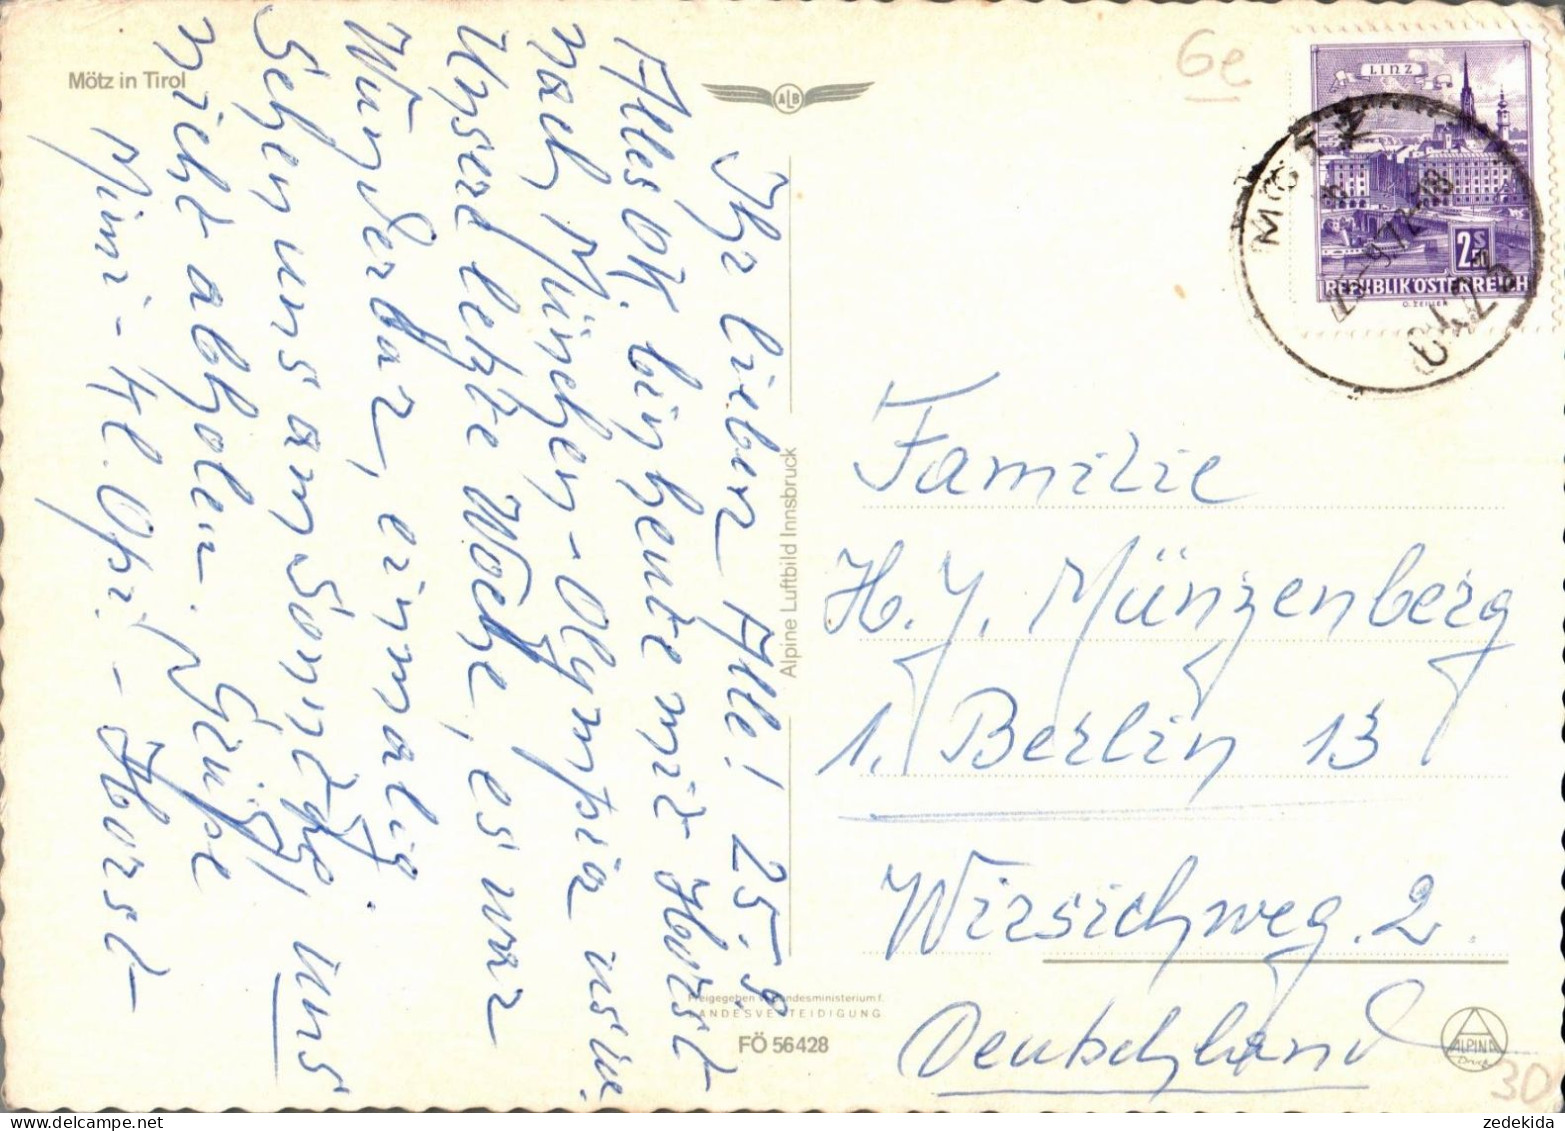 Mötz in Tirol
ALB
6e
Ihr lieben Alle! 25.9.
Alles OK. bin heute mit Horst
nach München-Olympia usw.
Unsere letzte Woche, es war
Wunderbar, einmalig.
Sehen uns am Sonntag, uns
nicht abholen. Grüße
Mimi - Kl. Opi. - Horst -
Alpine Luftbild Innsbruck
Freigegeben v. Bundesministerium f.
LANDESVERTEIDIGUNG
FÖ 56428
LINZ
2 S 50
REPUBLIK ÖSTERREICH
O. ZEILLER
MÖTZ
Familie
H. J. Münzenberg
1. Berlin 13
Wirsichweg. 2.
Deutschland
ALPINA
Druck
30
zedekida